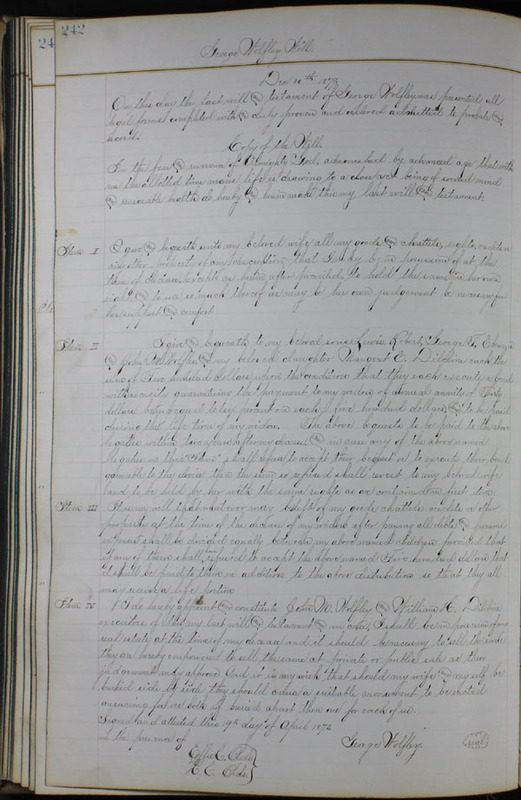 242
24
George Wolfley Will
Dec 10th 187
On this day the last will and testament of George Wolfley was presented all
legal forms complied with and duly proven and ordered admitted to probate and
record.
Copy of the Will
In the fear and of Almighty God, admonished by advanced age that with
me the allotted time mans life is drawing to a close yet being of sound mind
and reasonable health do hereby and herein make this my last will and testament.
Item I I give and bequeath unto my beloved wife all my goods and chattels, rights, credits
any other property of any description that I may be in possession of at the
time of decease, except as herein after provided, to hold the same in her own
right and to use so much thereof as may in her own judgement be necessary for
her support and comfort
Item II I give and bequeath to my beloved sons Lewis, Robert, George
and John M Wolfley and my beloved daughter Margaret E. each the
sum of Five hundred dollars upon the conditions that they each execute a bond
with security guaranteeing the payment to my widow of annual annuity of Thirty
dollars being equal to six percent on each five hundred dollars and to be paid
during the life time of my widow. The above bequests to be paid to the above
legatees within two years after my decease and in case any of the above named
legatees in this Item shall refuse to accept their bequest or to execute their bond
the sum so refused shall revert to my beloved wife
and to be held by her with the same rights as are contained in first item.
Item III It is my will that whatever may be left of my goods chattels credits or other
properties at the time of the decease of my widow after paying all debts and funeral
expenses shall be divided equally between my above named children provided that
if any of them shall refused to accept the above named Five hundred dollars that
it shall be paid to them in addition to the above distributions so that they all
may receive a like portion
Item IV I do hereby appoint and constitute John M. Wolfley and William H.
executors of this my last will and testament and in case I shall be in possession of any
real estate at the time of my decease and it should be necessary to sell the same
they are hereby empowered to sell the same at private or public sale as their
judgement may approve. And it is my wish that should my wife and myself be
buried side by side they should cause a suitable monument to be erected
answering for us both if buried apart then one for each of us.
Signed and attested this 19th day of April 1872
in the presence of
George Wolfley. seal